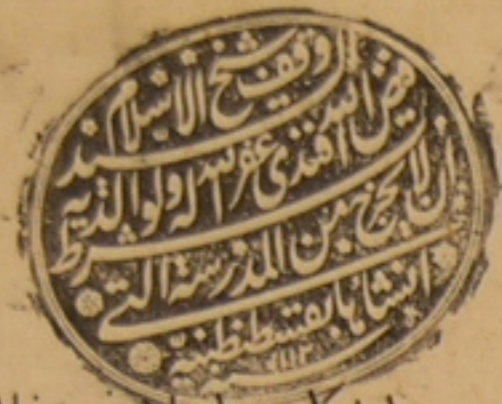 وقف شيخ الاسلام
السيد فيض الله افندى غفر الله له ولوالديه
بشرط ان لا يخرج من المدرسة التى
انشأها بقسطنطنية
سنه ١١١٢